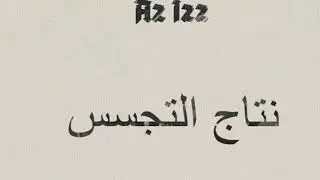 Az Izz
نتاج التجسس